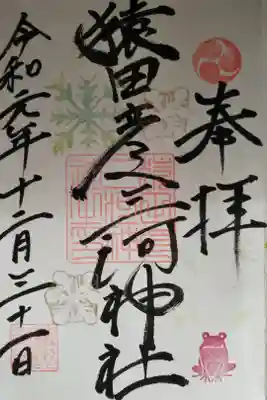 奉拝
猿田彦三河神社
令和元年十二月三十一日